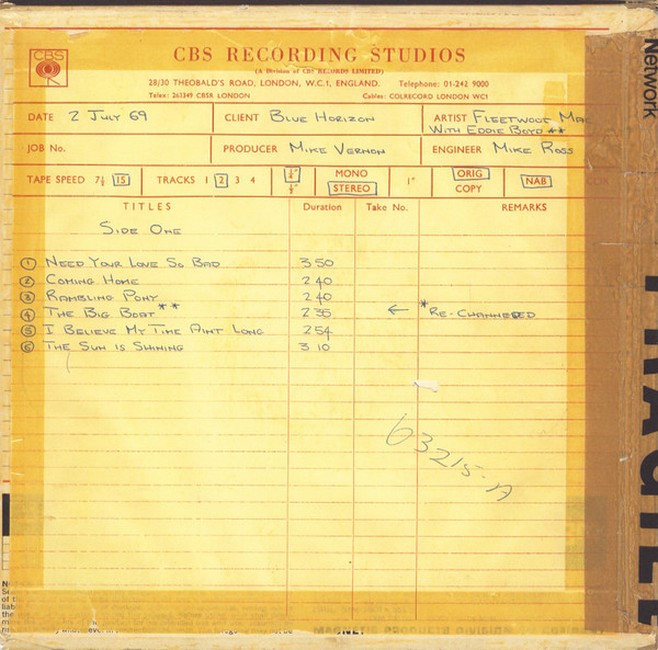 CBS
CBS RECORDING STUDIOS
(A Division of CBS RECORDS LIMITED)
28/30 THEOBALD'S ROAD, LONDON, W.C.1, ENGLAND. Telephone: 01-242 9000
Telex: 263349 CBSR LONDON Cables: COLRECORD LONDON WC1
DATE 2 JULY 69 CLIENT BLUE HORIZON ARTIST FLEETWOOD MAC
WITH EDDIE BOYD **
JOB No. PRODUCER MIKE VERNON ENGINEER MIKE ROSS
TAPE SPEED 7½ 15 TRACKS 1 2 3 4 ¼" ½" MONO STEREO 1" ORIG COPY NAB CCIR
TITLES Duration Take No. REMARKS
SIDE ONE
1 NEED YOUR LOVE SO BAD 3 50
2 COMING HOME 2 40
3 RAMBLING PONY 2 40
4 THE BIG BOAT ** 2 35 ← *RE-CHANNELED
5 I BELIEVE MY TIME AINT LONG 2 54
6 THE SUN IS SHINING 3 10
63215-A
Network
FRAGILE